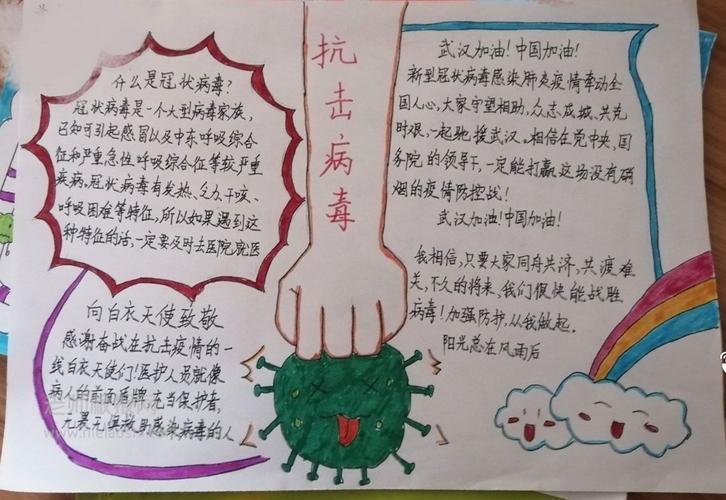 抗击病毒
什么是冠状病毒?
冠状病毒是一个大型病毒家族,
已知可引起感冒以及中东呼吸综合
征和严重急性呼吸综合征等较严重
疾病。冠状病毒有发热、乏力、干咳、
呼吸困难等特征,所以如果遇到这
种特征的话,一定要及时去医院就医
向白衣天使致敬
感谢奋战在抗击疫情的一
线白衣天使们!医护人员就像
病人的前面盾牌,充当保护者,
感染病毒的人
武汉加油!中国加油!
新型冠状病毒感染肺炎疫情牵动全
国人心,大家守望相助、众志成城、共克
时艰、一起驰援武汉。相信在党中央、国
务院的领导下,一定能打赢这场没有硝
烟的疫情防控战!
武汉加油!中国加油!
我相信,只要大家同舟共济、共渡难
关,不久的将来,我们很快能战胜
病毒!加强防护,从我做起。
阳光总在风雨后